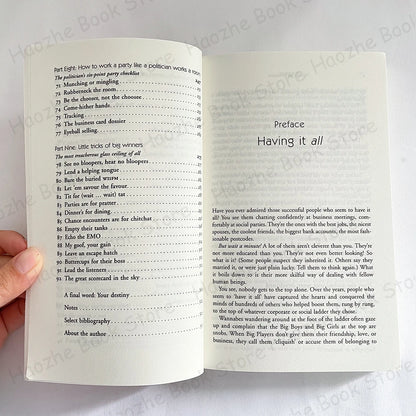 Part Eight: How to work a party like a politician works a room
The politician's six-point party checklist
71 Munching or mingling
72 Rubberneck the room
73 Be the chooser, not the choosee
74 Come-hither hands
75 Tracking
76 The business card dossier
77 Eyeball selling
Part Nine: Little tricks of big winners
The most treacherous glass ceiling of all
78 See no bloopers, hear no bloopers
79 Lend a helping tongue
80 Bare the buried WIIFM
81 Let 'em savour the favour
82 Tit for (wait ... wait) tat
83 Parties are for pratter
84 Dinner's for dining
85 Chance encounters are for chitchat
86 Empty their tanks
87 Echo the EMO
88 My goof, your gain
89 Leave an escape hatch
90 Buttercups for their boss
91 Lead the listeners
92 The great scorecard in the sky
A final word: Your destiny
Notes
Select bibliography
About the author
Preface
Having it all
Have you ever admired those successful people who seem to have it
all? You see them chatting confidently at business meetings, com-
fortably at social parties. They're the ones with the best jobs, the nicest
spouses, the coolest friends, the biggest bank accounts, the most fash-
ionable postcodes.
But wait a minute! A lot of them aren't cleverer than you. They're
not more educated than you. They're not even better looking! So
what is it? (Some people suspect they inherited it. Others say they
married it, or were just plain lucky. Tell them to think again.) What
it boils down to is their more skilful way of dealing with fellow
human beings.
You see, nobody gets to the top alone. Over the years, people who
seem to 'have it all' have captured the hearts and conquered the
minds of hundreds of others who helped boost them, rung by rung,
to the top of whatever corporate or social ladder they chose.
Wannabes wandering around at the foot of the ladder often gaze
up and complain that the Big Boys and Big Girls at the top are
snobs. When Big Players don't give them their friendship, love, or
business, they call them 'cliquish' or accuse them of belonging to
Haozhe Book Store